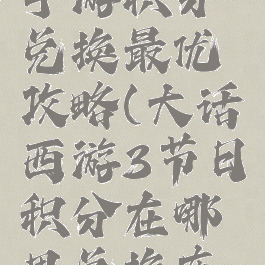 手游积分
兑换最优
攻略(大话
西游3节日
积分在哪
里兑换在